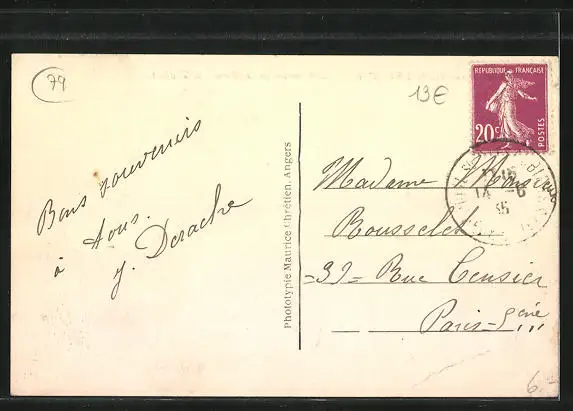 79
13€
RÉPUBLIQUE FRANÇAISE
20c
POSTES
14 -6
35
Bons souvenirs
à tous.
J. Derache
Phototypie Maurice Chrétien, Angers
Madame
Rousselet
=39= Rue Censier
Paris=5ème
6.-